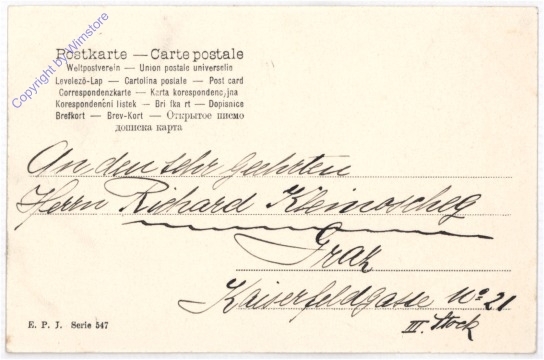 Postkarte — Carte postale
Weltpostverein — Union postale universelle
Levelező-Lap — Cartolina postale — Post card
Correspondenzkarte — Karta korespondencyjna
Korespondenční lístek — Bri fka rt — Dopisnice
Brefkort — Brev-Kort — Открытое писмо
дописка карта
Copyright by Wimstore
An den sehr geehrten
Herrn Richard Kleinoscheg
Graz
Kaiserfeldgasse No 21
III. Stock
E. P. J. Serie 547